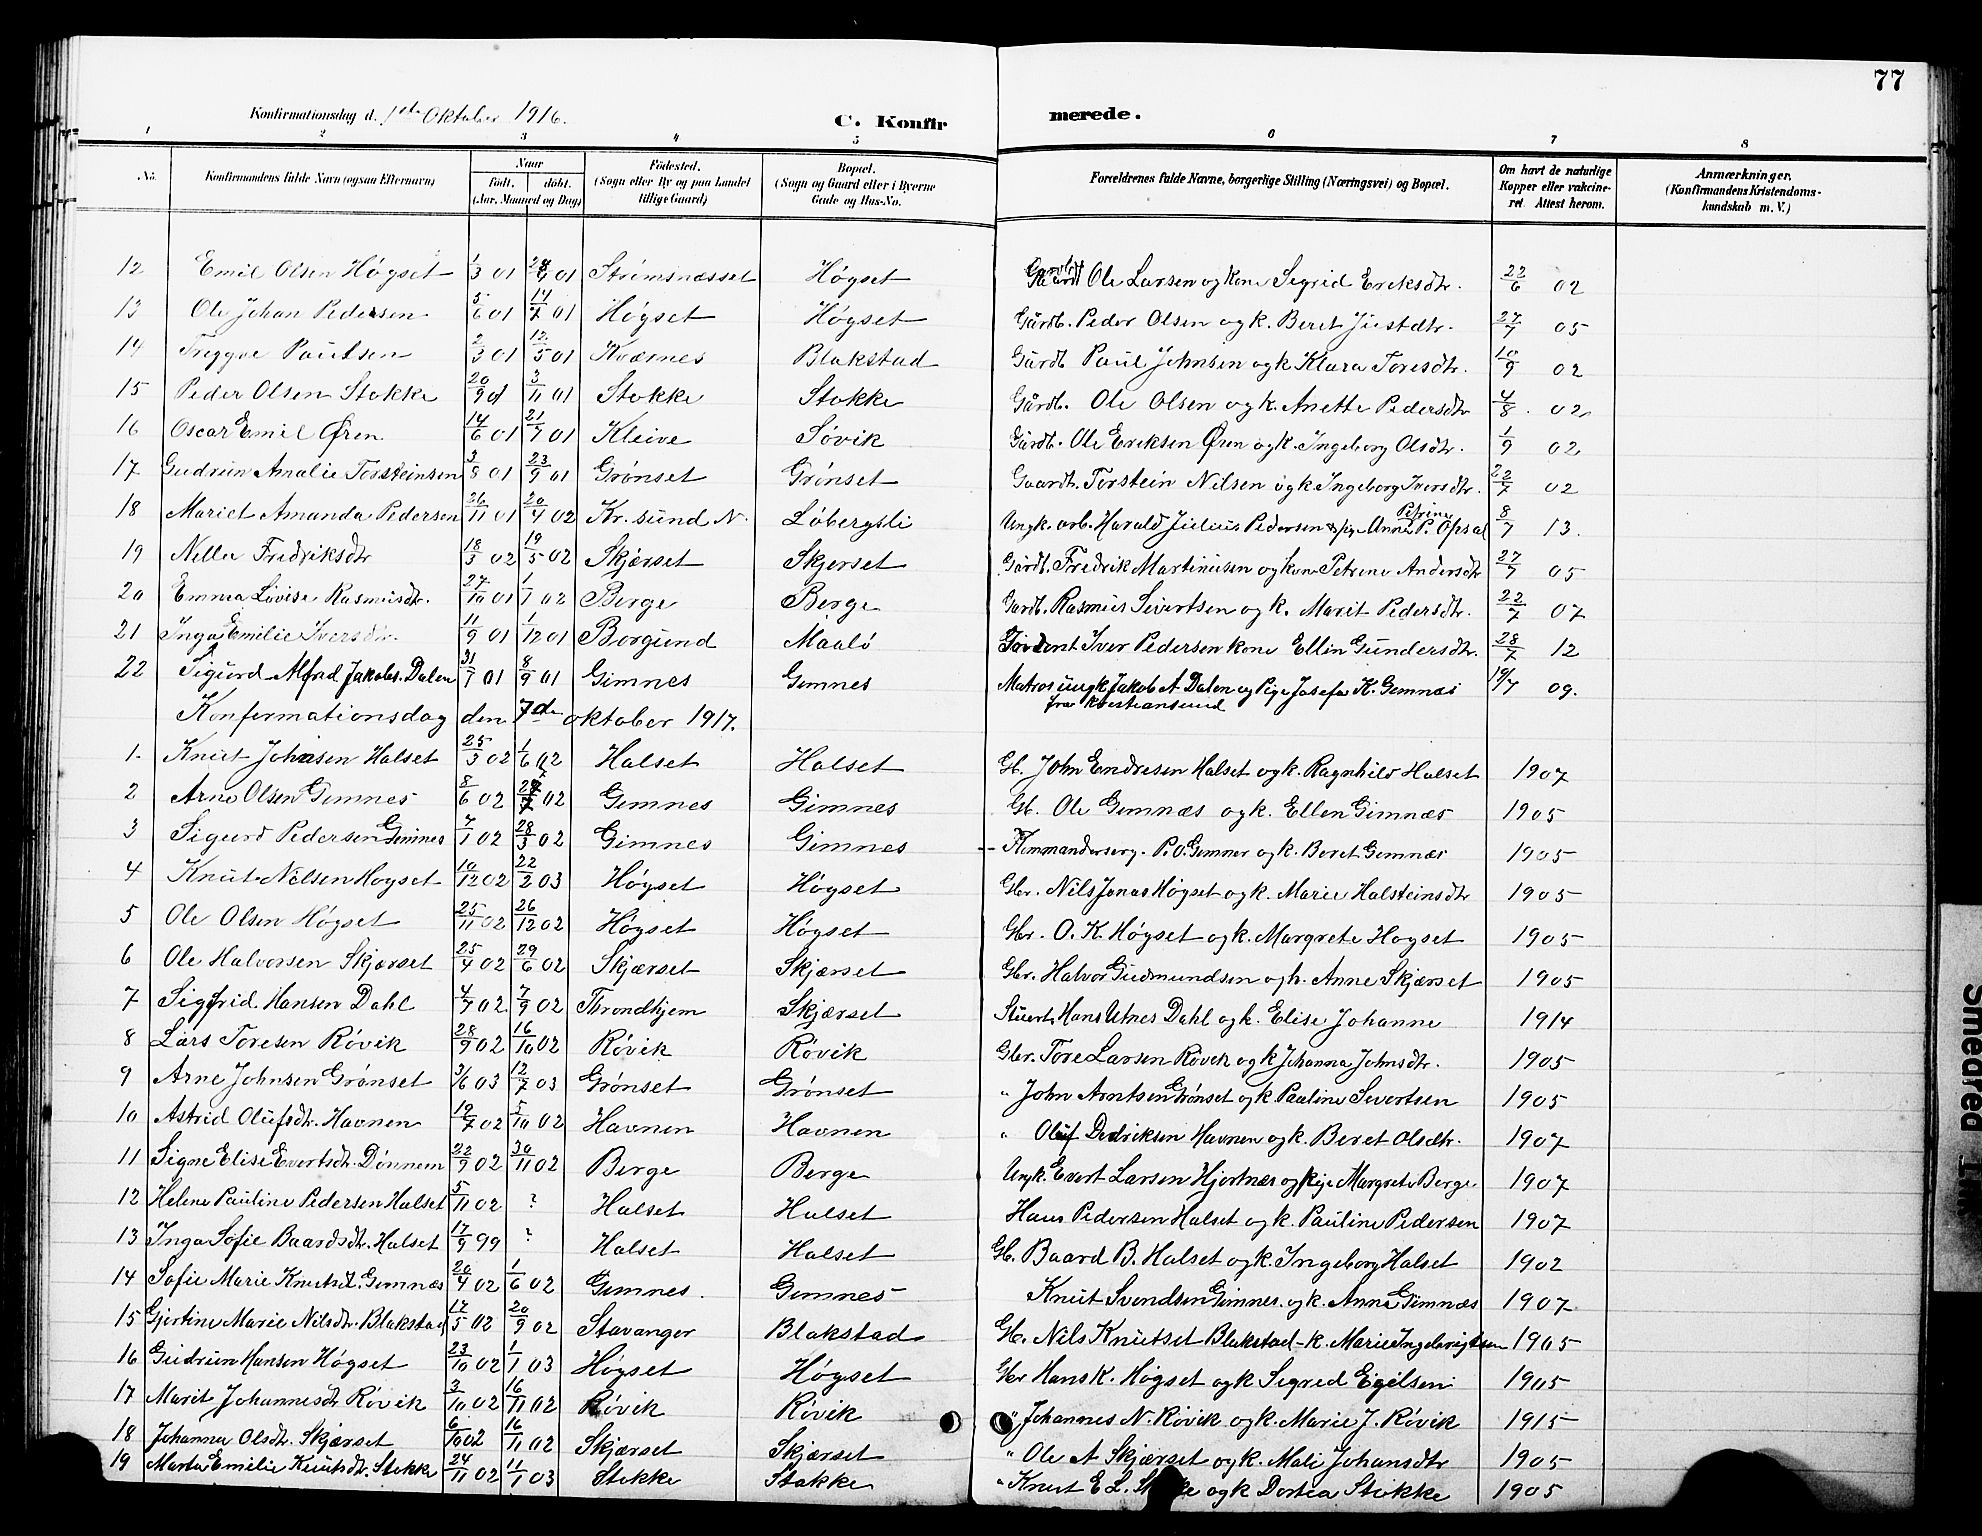 77
Konfirmationsdag d. 1ste Oktober 1916.
C. Konfirmerede.
1 2 3 4 5 6 7 8
No. Konfirmandens fulde Navn (ogsaa Efternavn) Naar født. døbt. (Aar, Maaned og Dag) Fødested. (Sogn eller By og paa Landet tillige Gaard) Bopæl. (Sogn og Gaard eller i Byerne Gade og Hus-No. Forældrenes fulde Navne, borgerlige Stilling (Næringsvei) og Bopæl. Om havt de naturlige Kopper eller vakcineret Attest herom. Anmærkninger. (Konfirmandens Kristendomskundskab m. V.)
12 Emil Olsen Høgset 1/3 01 9 01 Strømsnesset Høgset Ole Larsen og kone Sigrid Eriksdtr. 22/6 02
13 Ole Johan Pedersen 5/6 01 14/7 01 Høgset Høgset Gårdb. Peder Olsen og k. Beret Justdtr. 27/7 05
14 Tryggve Paulsen 2/3 01 12/5 01 Kværnes Blakstad Gårdb Paul Johnsen og k Klara Toresdtr. 10/9 02
15 Peder Olsen Stokke 20/9 01 3/11 01 Stokke Stokke Gårdb. Ole Olsen og k. Anette Pedersdtr 4/8 02
16 Oscar Emil Øren 14/6 01 21/7 01 Kleive Søvik Gårdb. Ole Eriksen Øren og k. Ingeborg Olsdtr. 1/9 02
17 Gudrun Amalie Torsteinsen 3/8 01 23/9 01 Grønset Grønset Gaardb. Torstein Nilsen og k. Ingeborg Iversdtr. 22/7 02
18 Mariet Amanda Pedersen 26/11 01 20/4 02 Kr.sund N. Løbergsli Ungk. arb. Harald Julius Pedersen & pige Anne Petrine P. Opsal 8/7 13.
19 Nella Fredriksdtr 18/3 02 19/5 02 Skjørset Skjerset Gårdb. Fredrik Martinusen og kone Petrine Andersdtr 27/7 05
20 Emma Lovise Rasmusdtr. 27/10 01 1/1 02 Berge Berge Gardb. Rasmus Sivertsen og k. Marit Pedersdtr. 22/7 07
21 Inga Emilie Iversdtr. 11/9 01 1/12 01 Borgund Maalø Iver Pedersen kone Ellin Gundersdtr. 28/7 12
22 Sigurd Alfred Jakobs. Dalen 31/7 01 8/9 01 Gimnes Gimnes Matros ungk Jakob A. Dalen og Pige Josefa K. Gimnæs 19/7 09.
fra Kristiansund
Konfirmationsdag den 7de oktober 1917.
1. Knut Johnsen Halset 25/3 02 1/6 02 Halset Halset Gb. John Endresen Halset og k. Ragnhild Halset 1907
2 Arne Olsen Gimnes 8/6 02 02 Gimnes Gimnes Gb. Ole Gimnæs og k. Ellen Gimnæs 1905
3 Sigurd Pedersen Gimnes 7/1 02 28/3 02 Gimnes Gimnes P. O. Gimnes og k. Beret Gimnæs 1905
4 Knut Nilsen Høgset 10/12 02 22/2 03 Høgset Høgset Gbr. Nils Jonas Høgset og k. Marie Halsteinsdtr 1905
5 Ole Olsen Høgset 25/11 02 26/12 02 Høgset Høgset Gbr. O. K. Høgset og k. Margrete Høgset 1905
6 Ole Halvorsen Skjærset 25/4 02 29/6 02 Skjærset Skjærset Gbr. Halvor Gudmundsen og h. Anne Skjærset 1905
7 Sigfrid Hansen Dahl 4/7 02 7/9 02 Throndhjem Skjærset Stuert Hans Utnes Dahl og k. Elise Johanne 1914
8 Lars Toresen Røvik 28/9 02 16/10 02 Røvik Røvik Gbr. Tore Larsen Røvik og k Johanna Johnsdtr. 1905
9 Arne Johnsen Grønset 3/6 03 12/7 03 Grønset Grønset " John Arntsen Grønset og k Pauline Sivertsen 1905
10 Astrid Olufsdtr. Havnen 19/7 02 5/10 02 Havnen Havnen " Oluf Dedriksen Havnen og k. Beret Olsdtr. 1907
11 Signe Elise Evertsdtr. Dønnem 22/9 02 30/11 02 Berge Berge Ungk. Evert Larsen Hjortnæs og Pige Margrete Berge 1907
12 Helene Pauline Pedersen Halset 5/11 02 ? Halset Halset Hans Pedersen Halset og k. Pauline Pedersen 1907
13 Inga Sofie Baardsdtr. Halset 17/9 99 ? Halset Halset Gb. Baard B. Halset og k. Ingeborg Halset 1902
14 Sofie Marie Knutsd. Gimnæs 20/4 02 1/6 02 Gimnes. Gimnes Knut Svendsen Gimnes. og k. Anne Gimnæs 1907
15 Gjertine Marie Nilsdtr. Blakstad 17/5 02 20/9 02 Stavanger Blakstad Gb. Nils Knutset Blakstad - k. Marie Ingebrigtsen 1905
16 Gudrun Hansen Høgset 23/10 02 1/1 03 Høgset Høgset Gbr Hans K. Høgset og k Sigrid Egilsen 1905
17 Marit Johannesdtr Røvik 3/10 02 16/11 02 Røvik Røvik " Johannes N. Røvik og k. Marie J. Røvik 1915
18 Johanna Olsdtr. Skjærset 6/10 02 16/11 02 Skjærset Skjærset " Ole A Skjærset og k. Mali Johansdtr 1905
19 Marta Emilie Knutsdtr. Stokke 24/11 02 11/1 03 Stokke Stokke " Knut E L. og k Dortea Stokke 1905